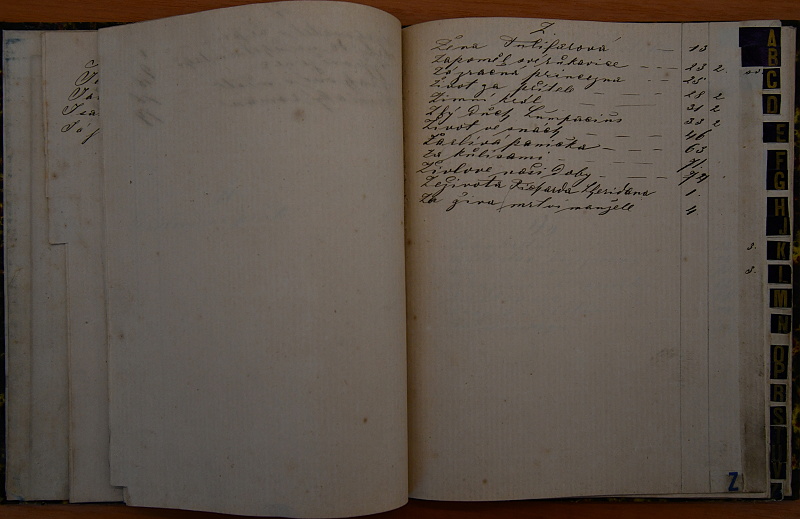 Z.
Žena Putifarová — 13
Zapoměl své rukavice — — 23 2.
Zázračná princezna — 25
Život za přítele — — — 28 2
Zimní král — — — 31 2
Zlý duch Lumpacius — 33 2
Život ve snách — — — 46
Žárlivá panička — — — 63
Za kulisami — — — 71
Živlové naší doby — — — 77
Ze života Richarda Sheridana 1
Za živa mrtví manželé 4
A
B
C
D
E
F
G
H
J
K
L
M
N
O
P
R
S
T
U
V
Z